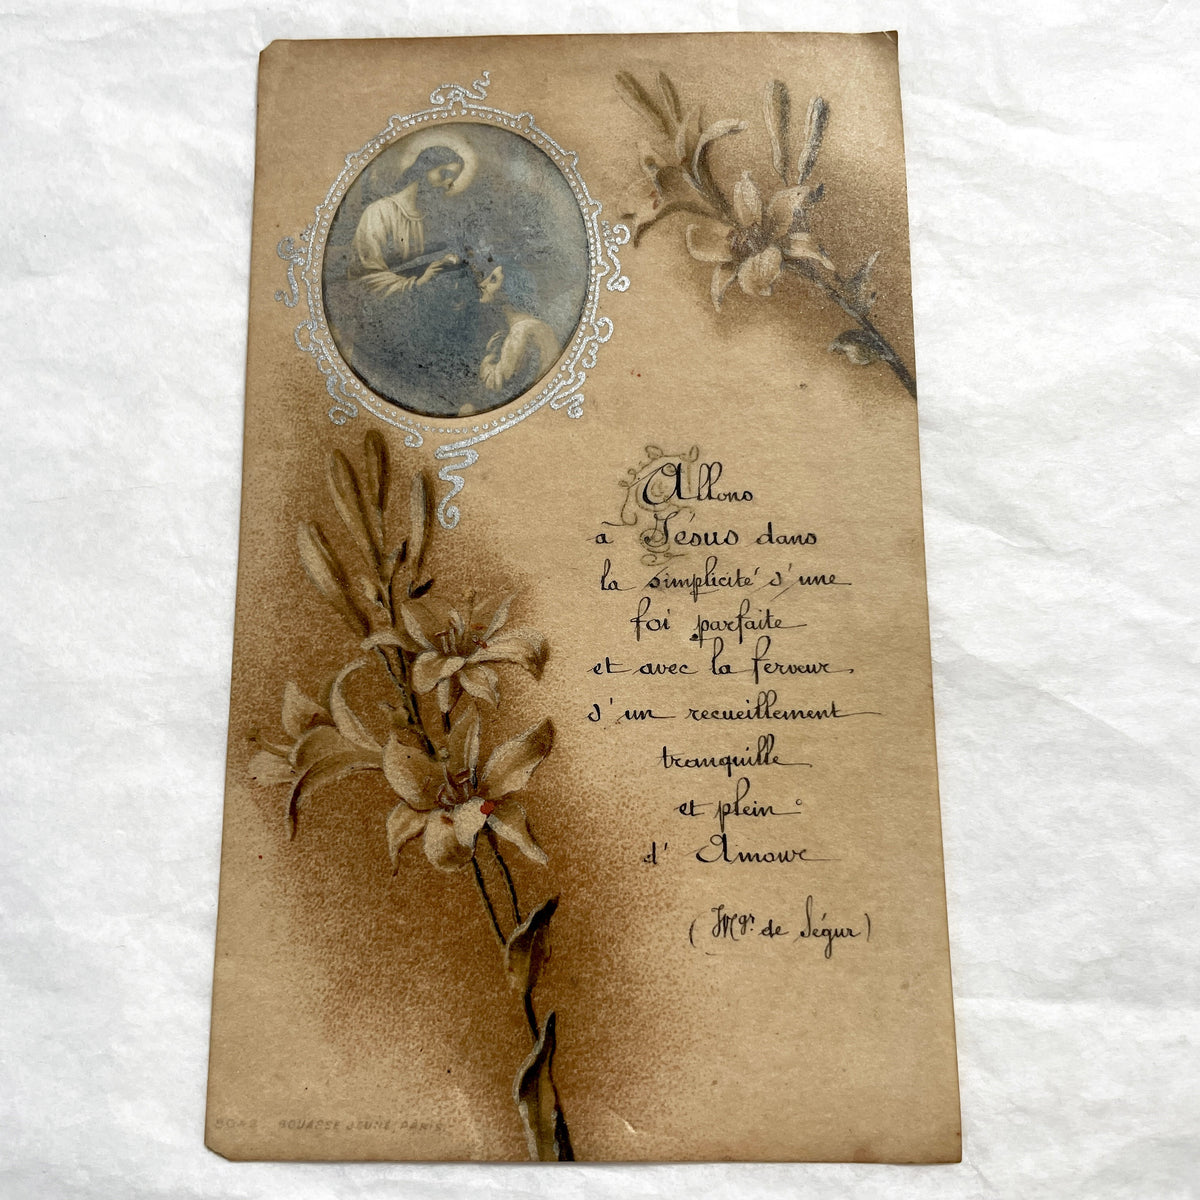 Allons
à Jésus dans
la simplicité d'une
foi parfaite
et avec la ferveur
d'un recueillement
tranquille
et plein
d' Amour
(Mgr. de Ségur)
BOUASSE JEUNE, PARIS